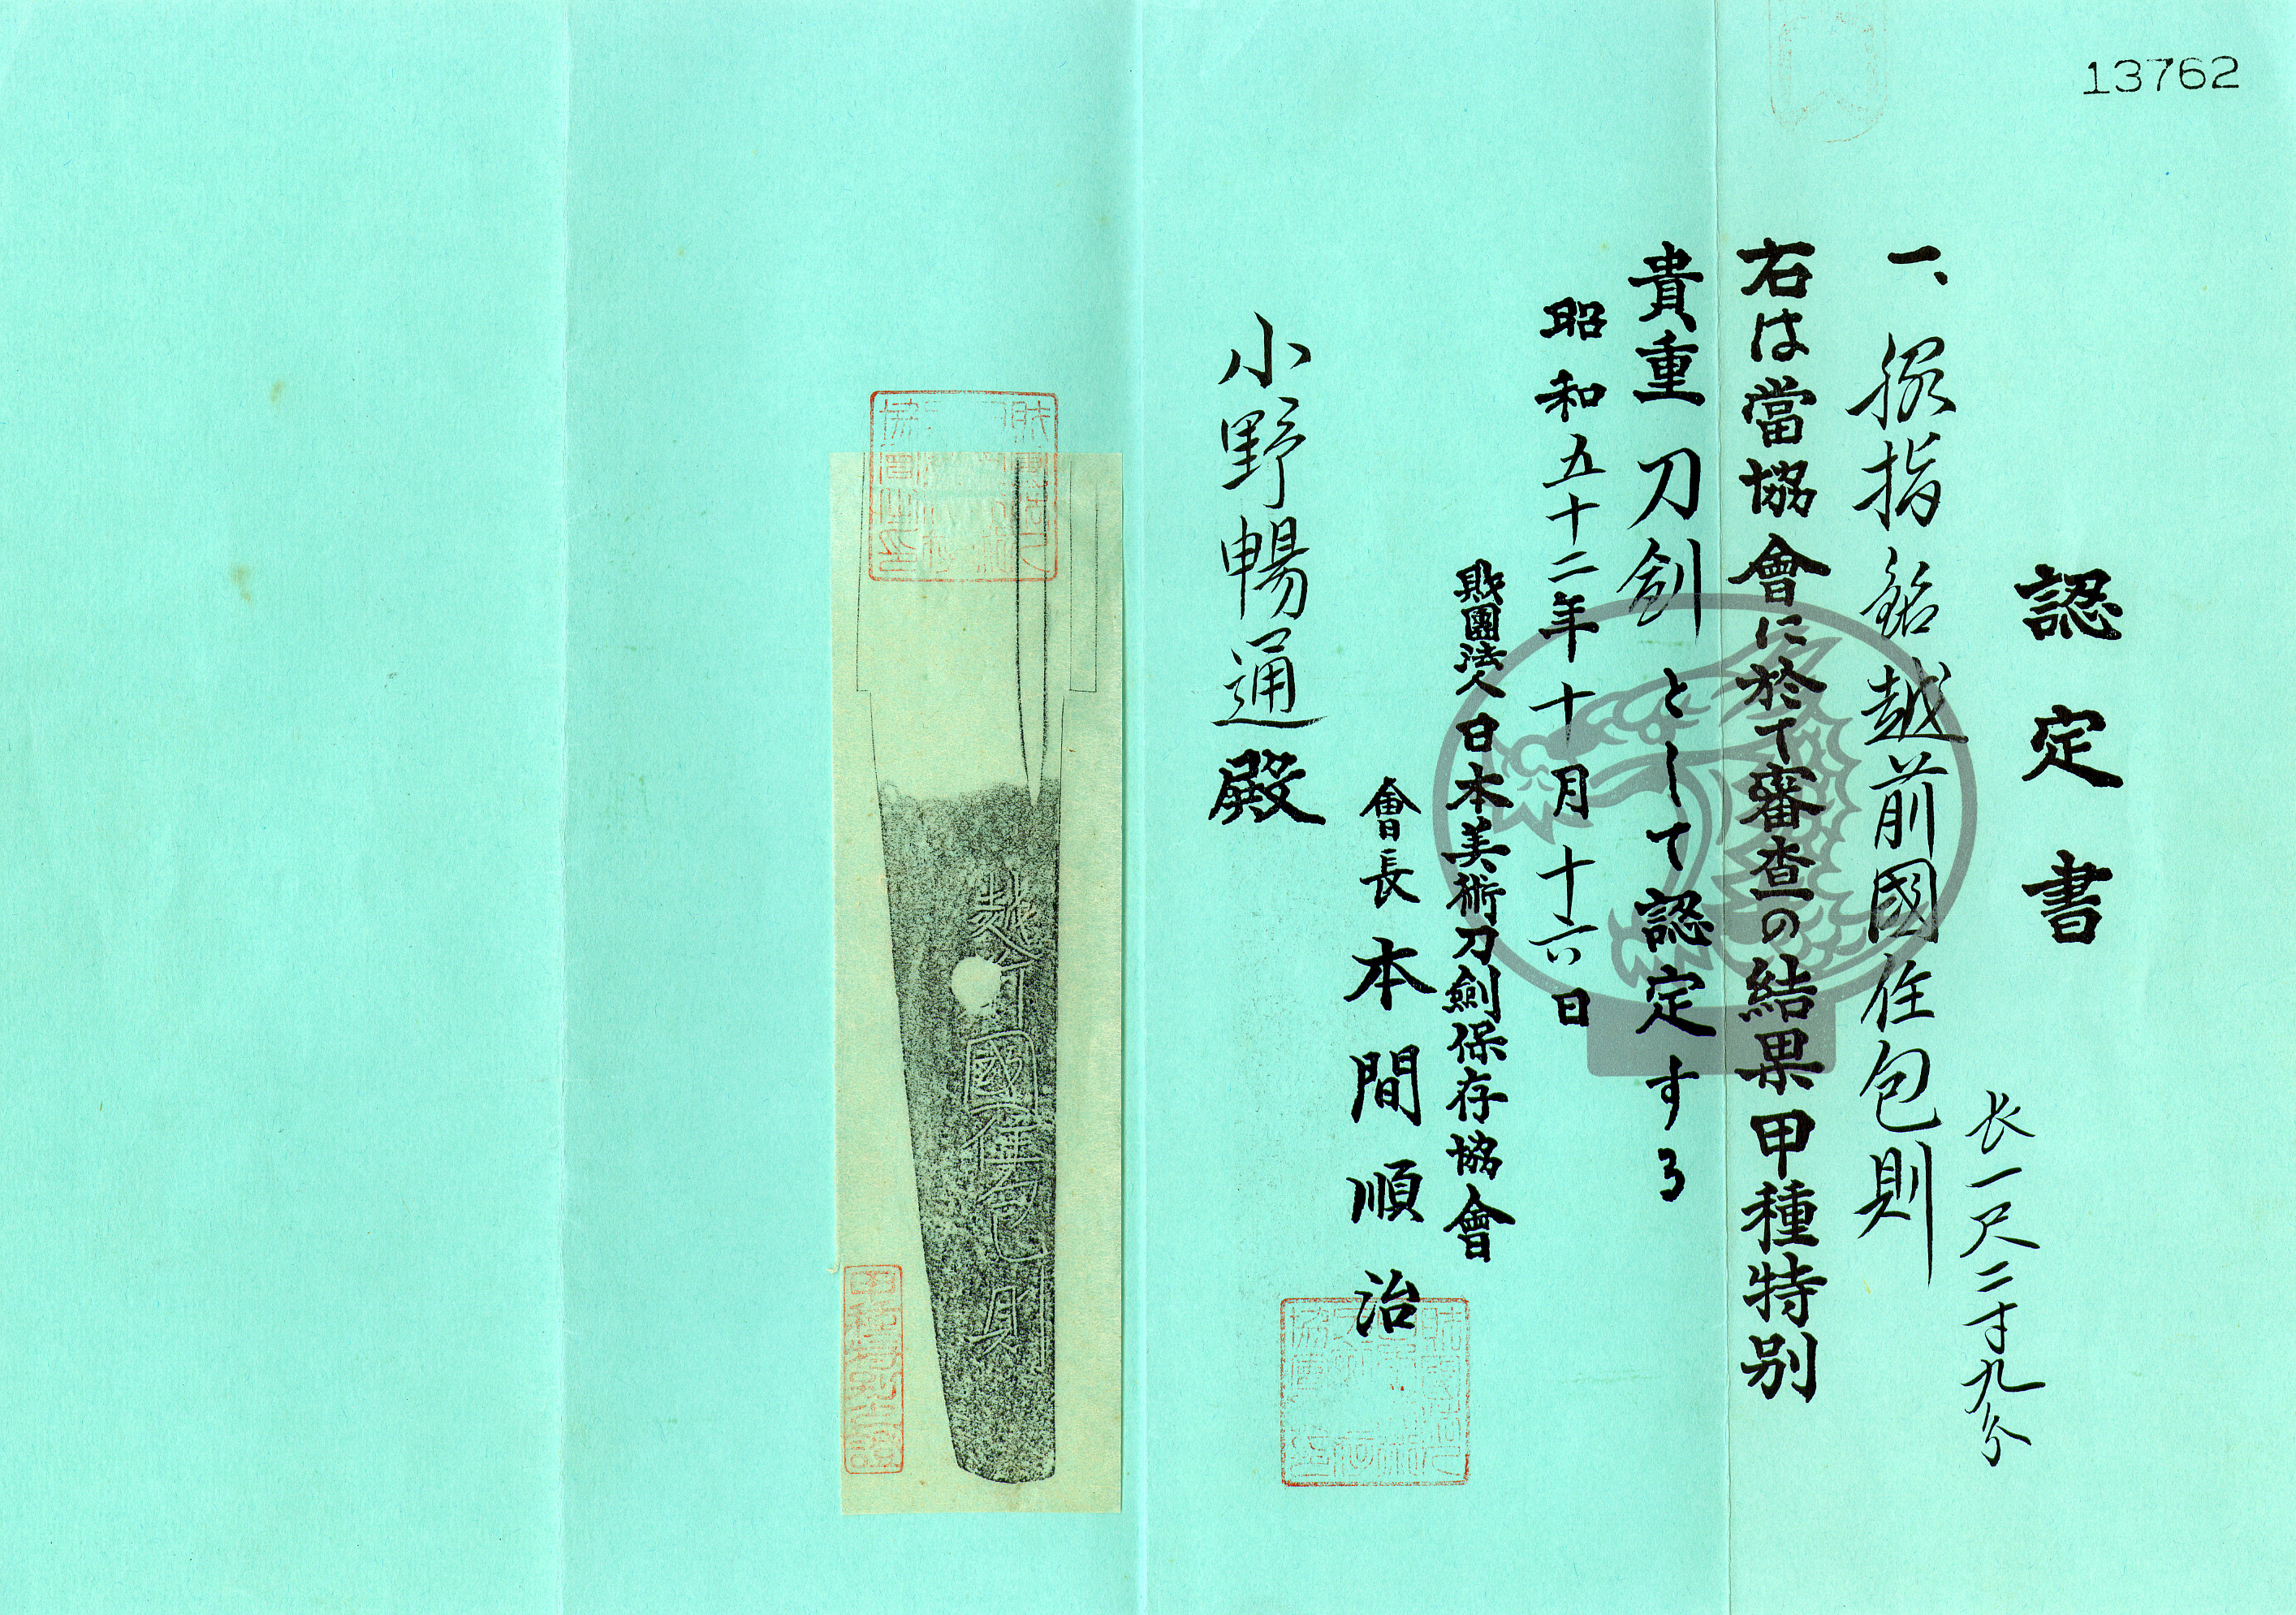 13762
認定書
一、脇指 銘 越前國住包則
長一尺二寸九分
右は當協會に於て審査の結果甲種特別
貴重刀剣として認定する
昭和五十二年十月十六日
財團法人日本美術刀劍保存協會
會長 本間順治
小野暢通殿
越前國住包則
甲種特別